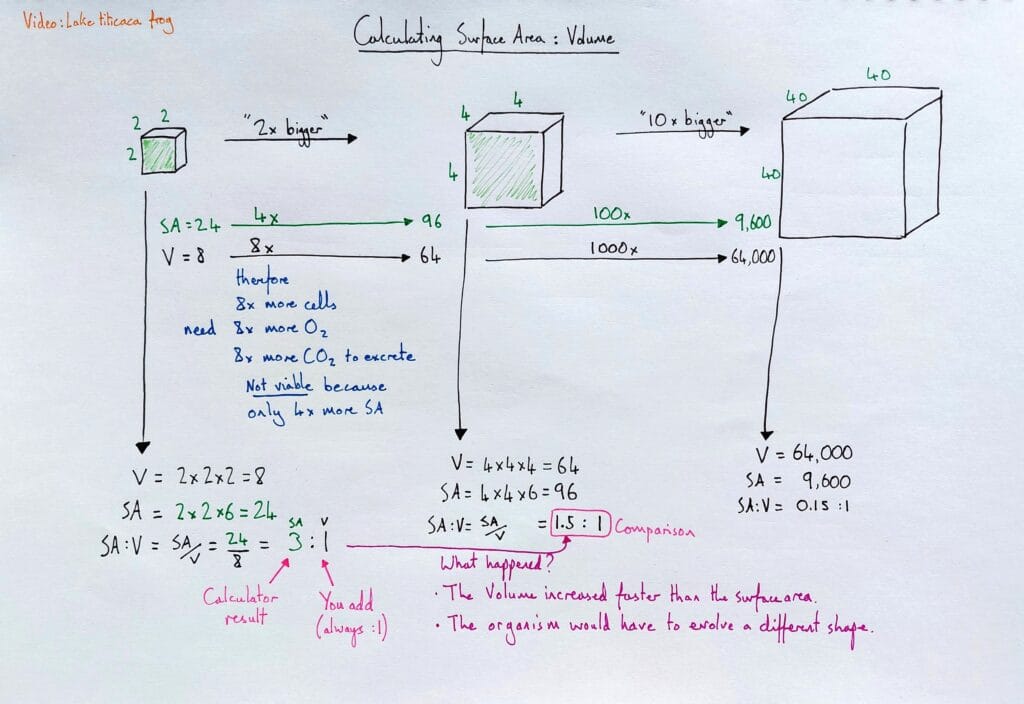 Video: Lake titicaca frog
Calculating Surface Area : Volume
2 2
2
"2x bigger"
4 4
4
"10x bigger"
40
40
40
SA = 24 4x 96 100x 9,600
V = 8 8x 64 1000x 64,000
therefore
8x more cells
need 8x more O₂
8x more CO₂ to excrete
Not viable because
only 4x more SA
V = 2x2x2 = 8
SA = 2x2x6 = 24
SA V
SA:V = SA/V = 24/8 = 3 : 1
Calculator
result
You add
(always :1)
V = 4x4x4 = 64
SA = 4x4x6 = 96
SA:V = SA/V = 1.5 : 1 Comparison
What happened?
• The Volume increased faster than the surface area.
• The organism would have to evolve a different shape.
V = 64,000
SA = 9,600
SA:V = 0.15 :1